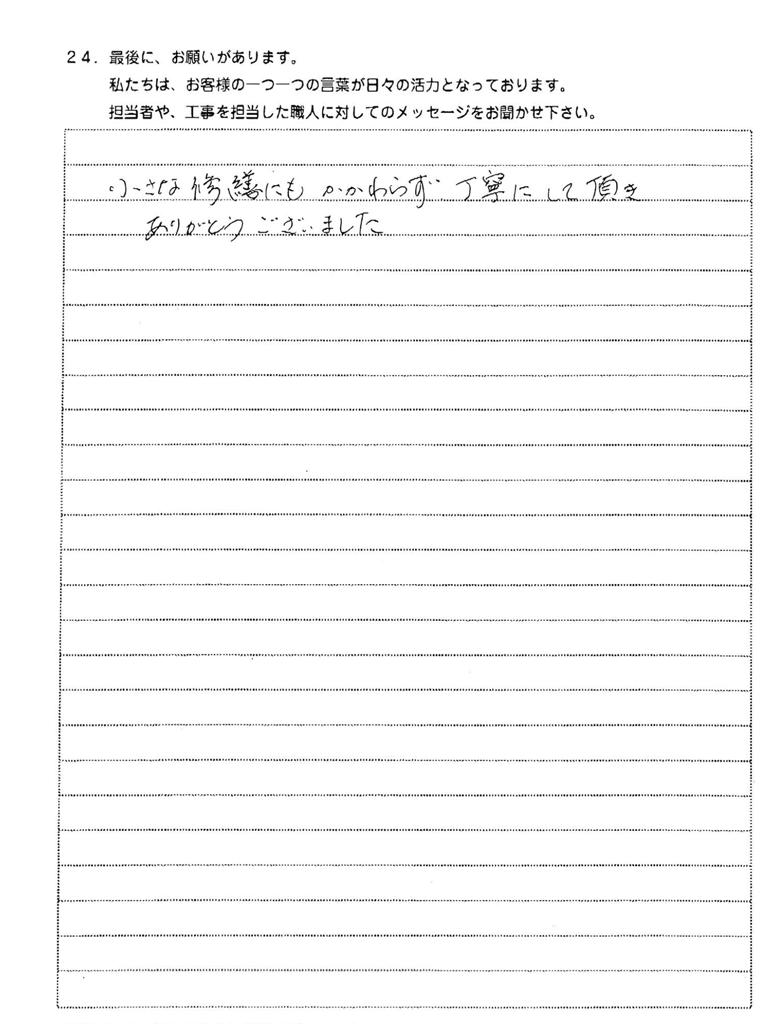 24. 最後に、お願いがあります。
私たちは、お客様の一つ一つの言葉が日々の活力となっております。
担当者や、工事を担当した職人に対してのメッセージをお聞かせ下さい。
小さな修繕にもかかわらず丁寧にして頂き
ありがとうございました